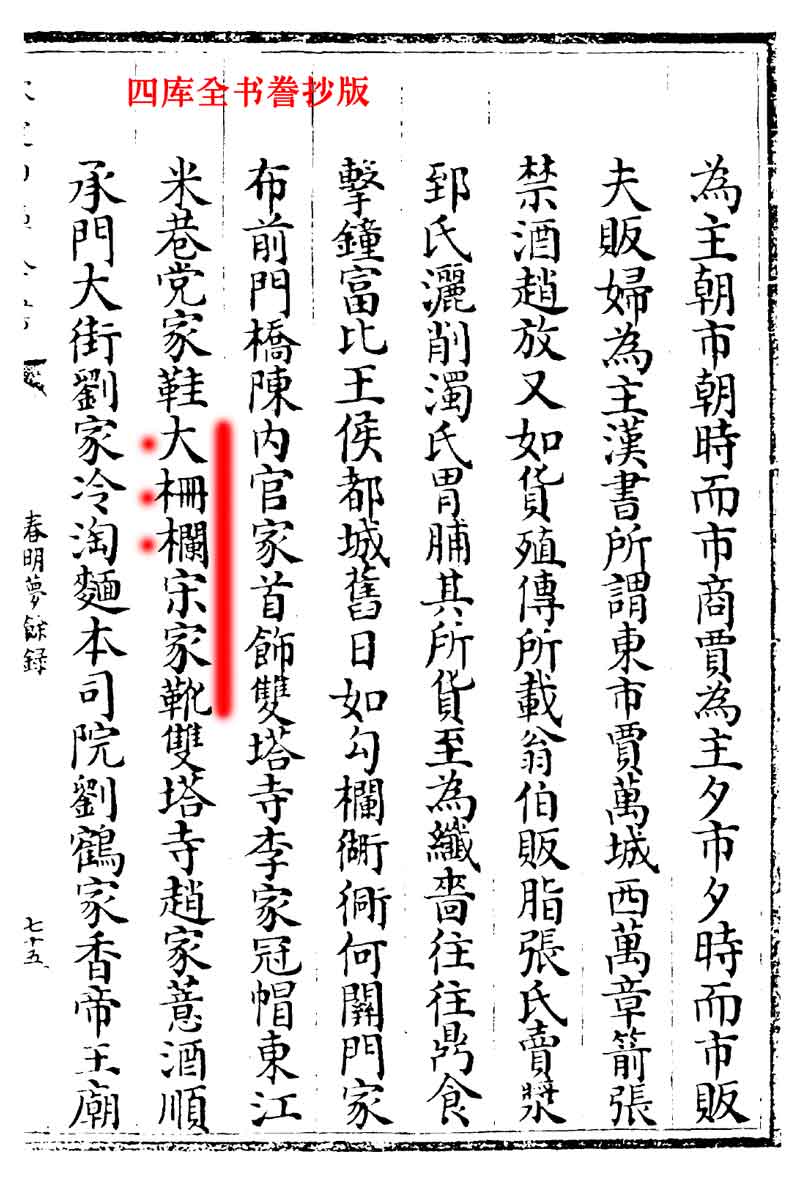 四库全书誊抄版
為主朝市朝時而市商賈為主夕市夕時而市販
夫販婦為主漢書所謂東市賈萬城西萬章箭張
禁酒趙放又如貨殖傳所載翁伯販脂張氏賣漿
郅氏灑削濁氏胃脯其所貨至為纖嗇往往鼎食
擊鐘富比王侯都城舊日如勾欄衚衕何關門家
布前門橋陳内官家首飾雙塔寺李家冠帽東江
米巷党家鞋大柵欄宋家靴雙塔寺趙家薏酒順
承門大街劉家冷淘麵本司院劉鶴家香帝王廟
春明夢餘録
七十五